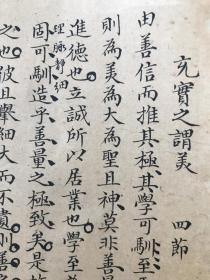 充實之謂美　四節
由善信而推其極其學可馴至
則為美為大為聖且神莫非善
進德也立誠所以居業也學至
理脉靜細
固可馴造乎善量之極致矣是故
之也彼且舉細大而不遺則善